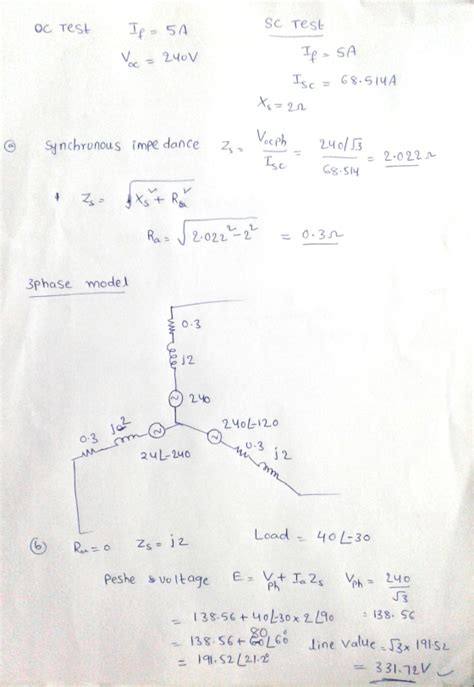 OC Test If = 5A
Voc = 240V
SC Test
If = 5A
Isc = 68.514A
Xs = 2Ω
(a) Synchronous impedance Zs = Vocph/Isc = 240/√3 / 68.514 = 2.022Ω
Zs = √(Xs² + Ra²)
Ra = √(2.022² - 2²) = 0.3Ω
3phase model
0.3
j2
240
240∠-120
0.3 j2
0.3 j2
24∠-240
(b) Ra = 0 Zs = j2 Load = 40∠-30
Peshe voltage E = Vph + IaZs Vph = 240/√3
= 138.56 + 40∠-30 x 2∠90 = 138.56
= 138.56 + 80∠60° line value = √3 x 191.52
= 191.52∠21.2° = 331.72V